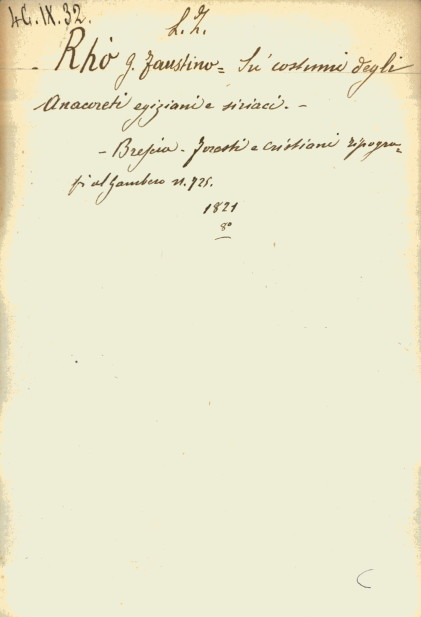 4G.IX.32.
Rhò g. Faustino = Su' costumi degli
Anacoreti egiziani e siriaci. -
- Brescia - Foresti e Cristiani tipogra=
fi al Gambero n. 725.
1821
8º